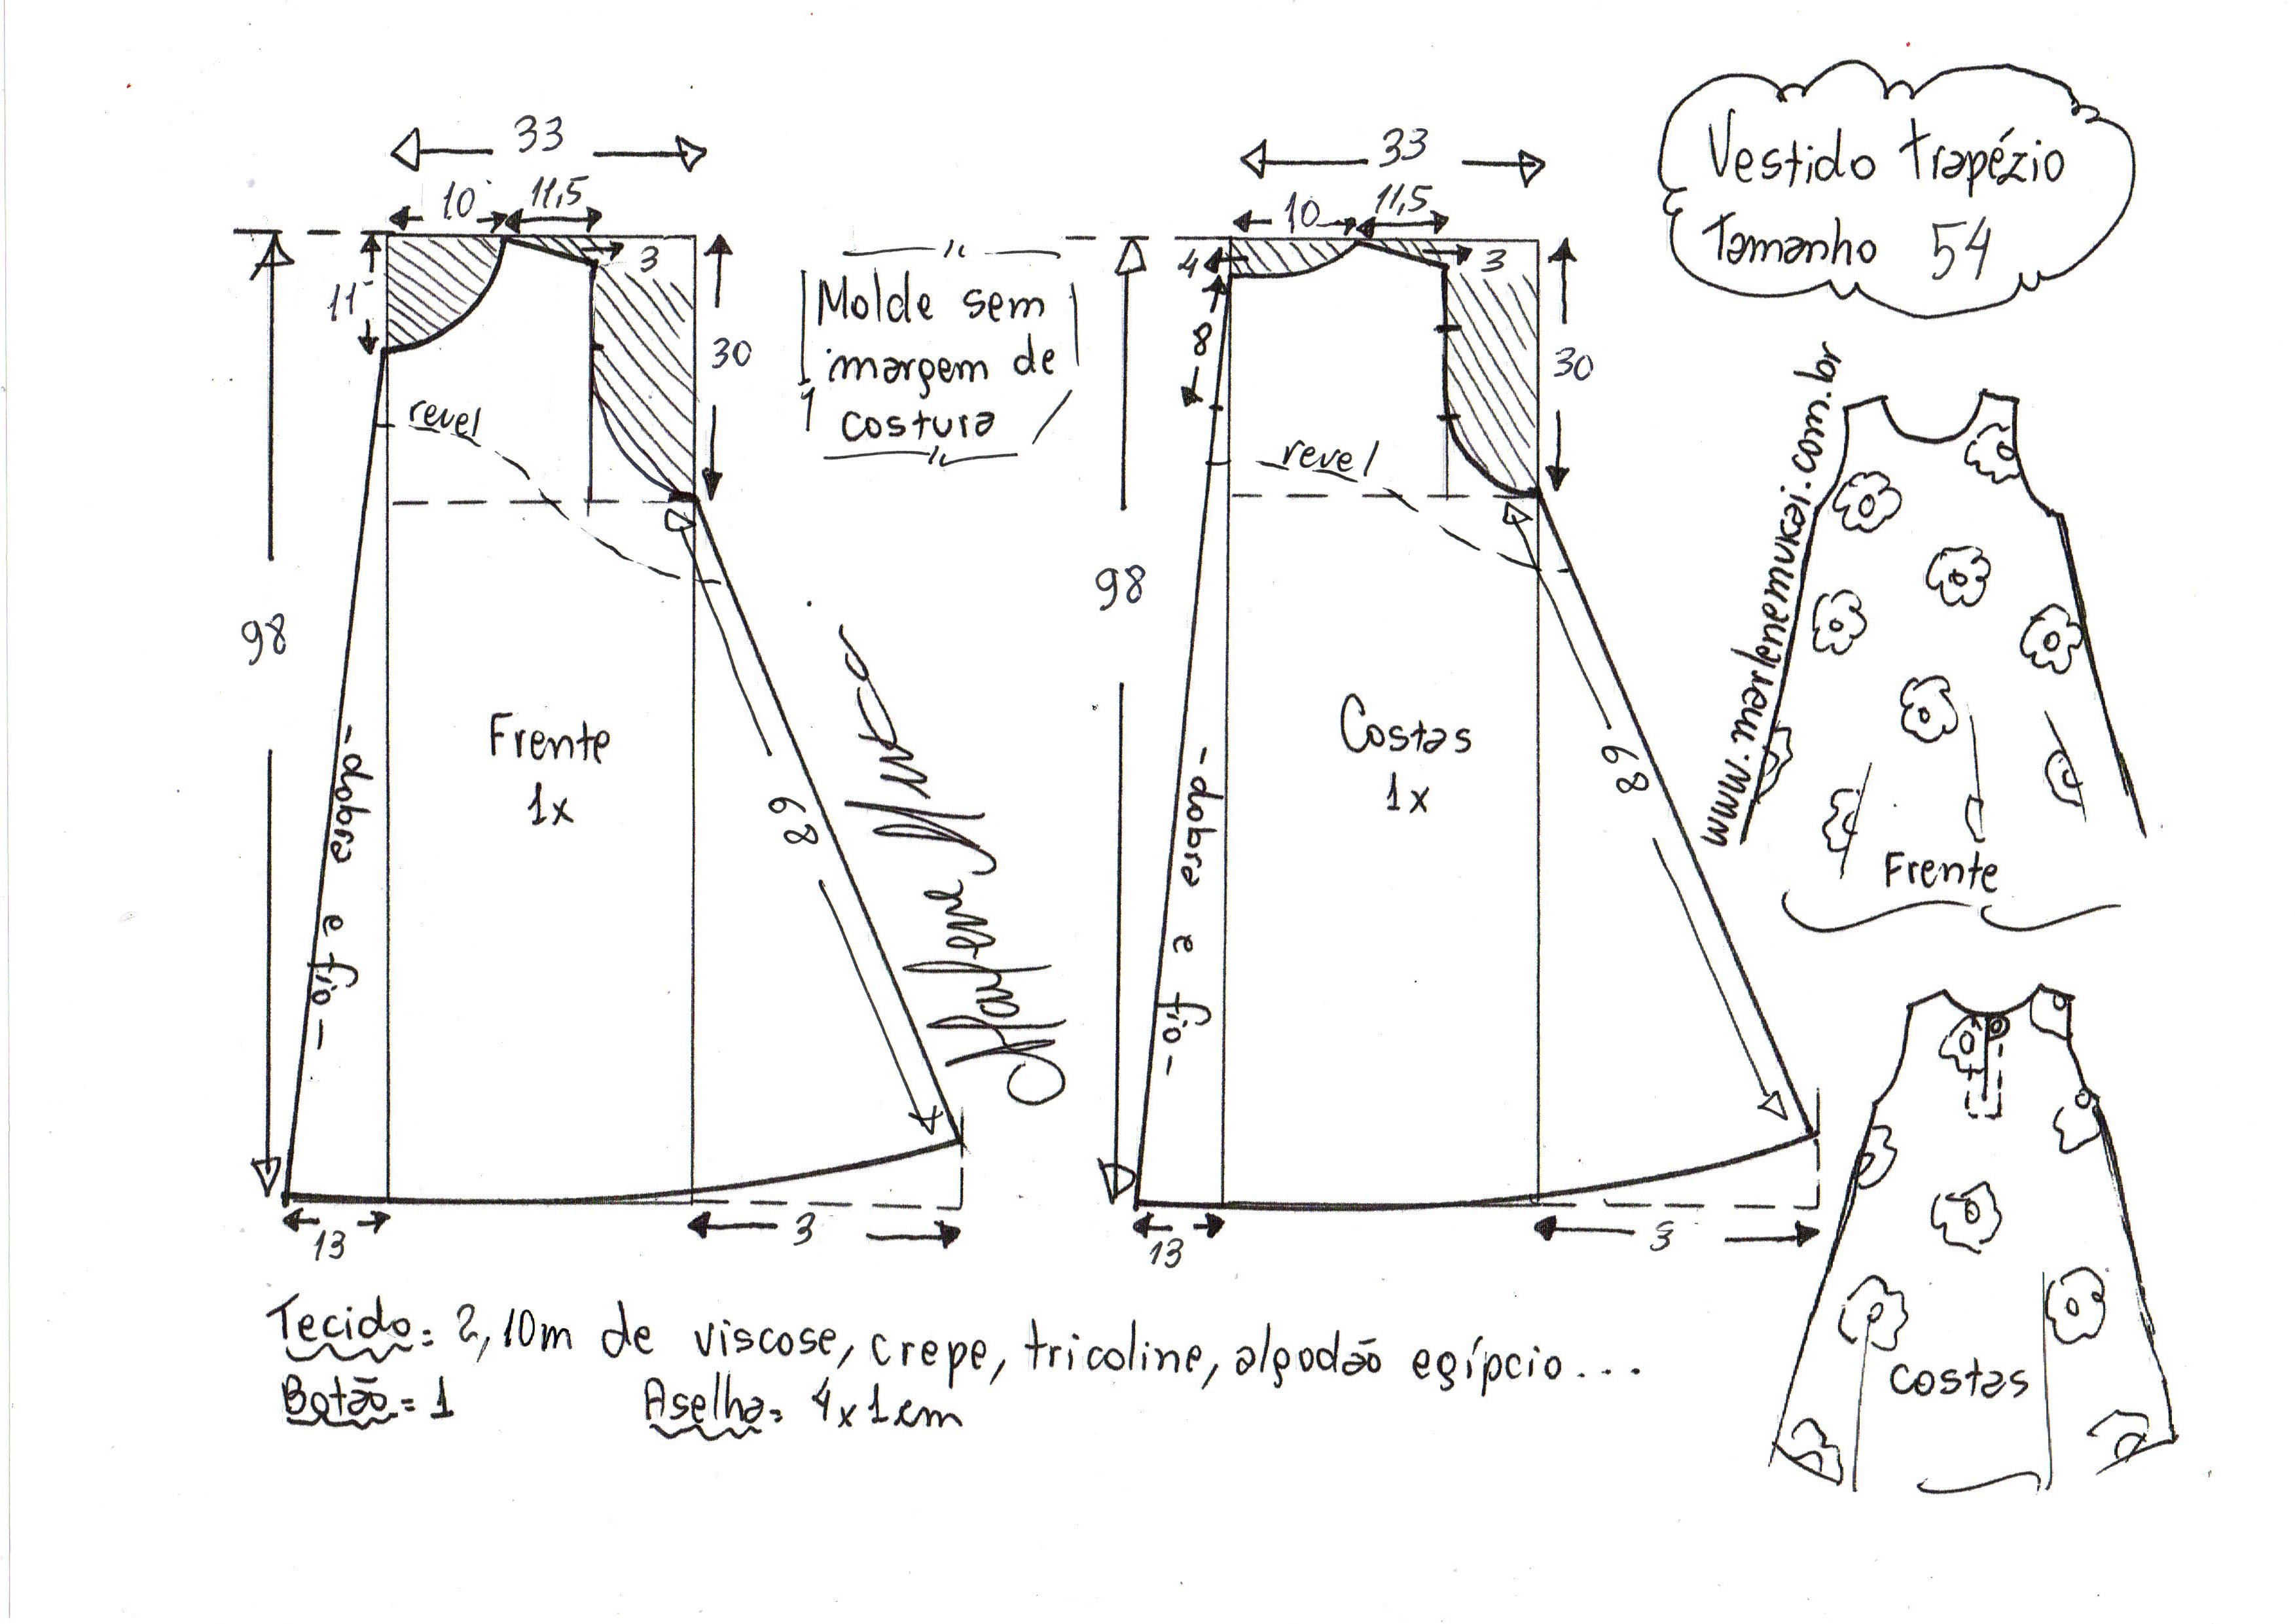 Vestido trapézio
Tamanho 54
33
10
11,5
3
11
30
revel
98
Frente
1x
- dobra e fio -
68
13
3
Molde sem
margem de
costura
Marlene Mukai
33
10
11,5
4
3
8
30
revel
98
Costas
1x
- dobra e fio -
68
13
3
www.marlenemukai.com.br
Frente
Costas
Tecido= 2,10m de viscose, crepe, tricoline, algodão egípcio...
Botão= 1
Aselha= 4x1cm